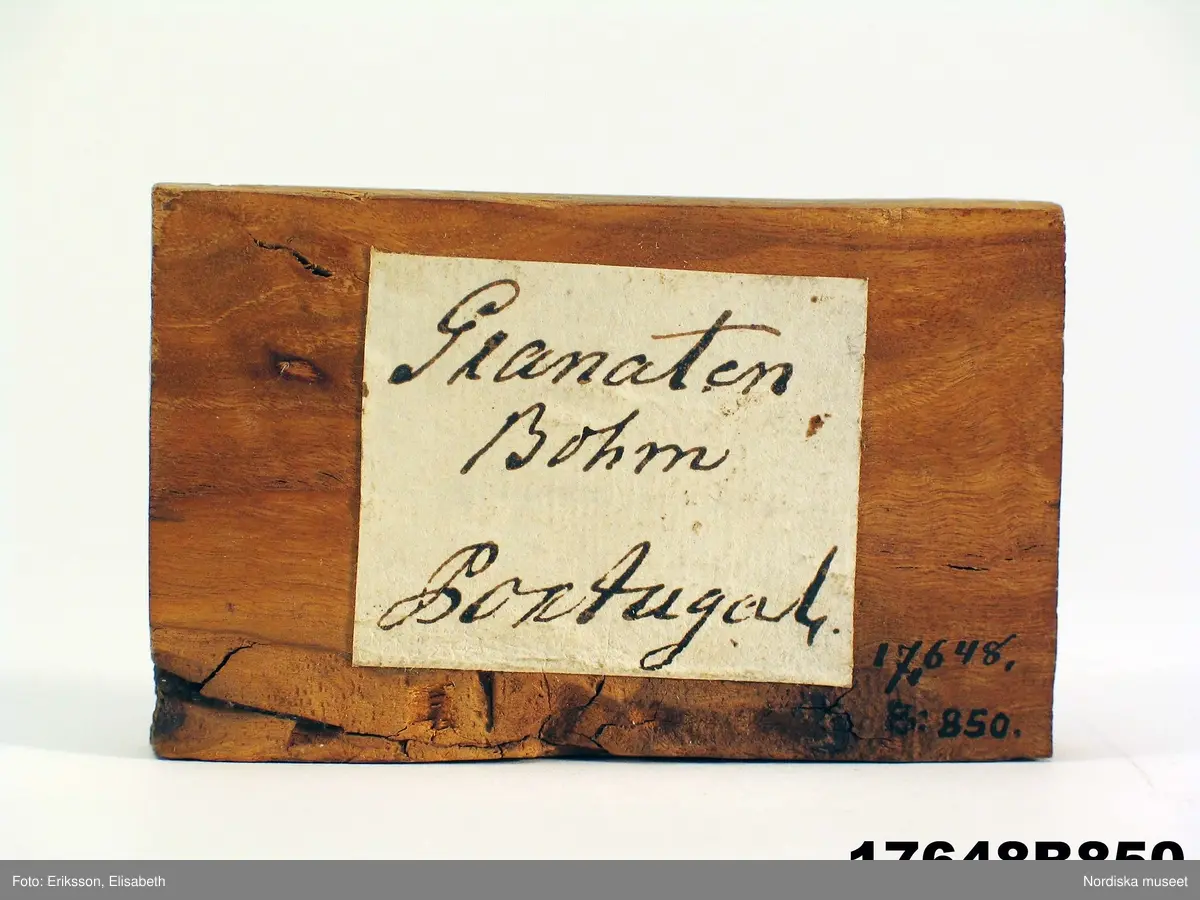 Granaten
Bohm
Portugal.
17,648.
B: 850.
17648B850
Foto: Eriksson, Elisabeth
Nordiska museet